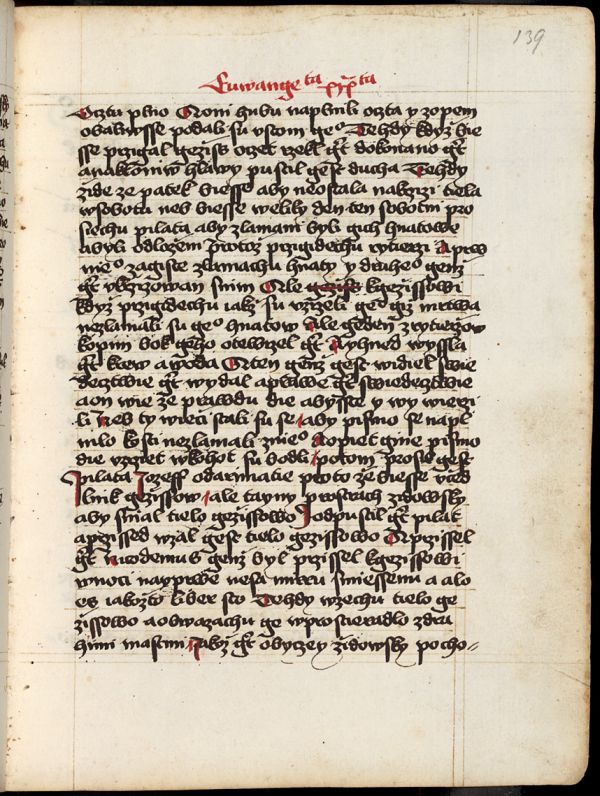 139
Euwangeᵗᵃ xpiᵗᵃ
Octu plno Oni hubu naplnili octa y zopem
obalivsse podali su vstom geᵒ Tehdy kdyz bie
sse przigal geziss ocet rzekl gt dokonano gt
a nakloniw hlawy pustil gest ducha Tehdy
zide ze patek biesse aby neostala na krzizi tiela
w sobotu neb biesse weliky den ten sobotni pro
siechu pilata aby zlamani byli gich hnatowe
a byli odlozeni Protoz przigidechu rytierzi A prw
nieᵒ zagiste zlamachu hnaty y druheᵒ genz
gt vkrzizowan s nim Ale gezissowi
kdyz przigidechu iakz su vzrzeli geᵒ giz mrtwa
nezlamali su geᵒ hnatow Ale geden z rytierzow
kopim bok geho otewrzel gt A yhned wyssla
gt krew a woda A ten genz gest widiel swie
dectwie gt wydal a prawe gt swiedectwie
a on wie ze prawdu die abysste y wy wierzi
li Neb ty wieci stali su se aby pismo se napl
nilo kosti nezlamali z nieᵒ A opiet gine pismo
die vzrzie w kohot su bodli Potom prosil gest
pilata Jozeff od armatie proto ze biesse vced
lnik gezissow ale tayny pro strach zidowsky
aby snial tielo gezissowo J odpustil gt pilat
a przissed wzal gest tielo gezissowo A przissel
gt Nicodemus genz byl przissel k gezissowi
w noci nayprwe nesa mirru smiessenu a alo
es iakozto liber sto Tehdy wzechu tielo ge
zissowo a obwazachu ge w prostieradlo z dra
himi mastmi Jakz gt obyczey zidowsky pocho=